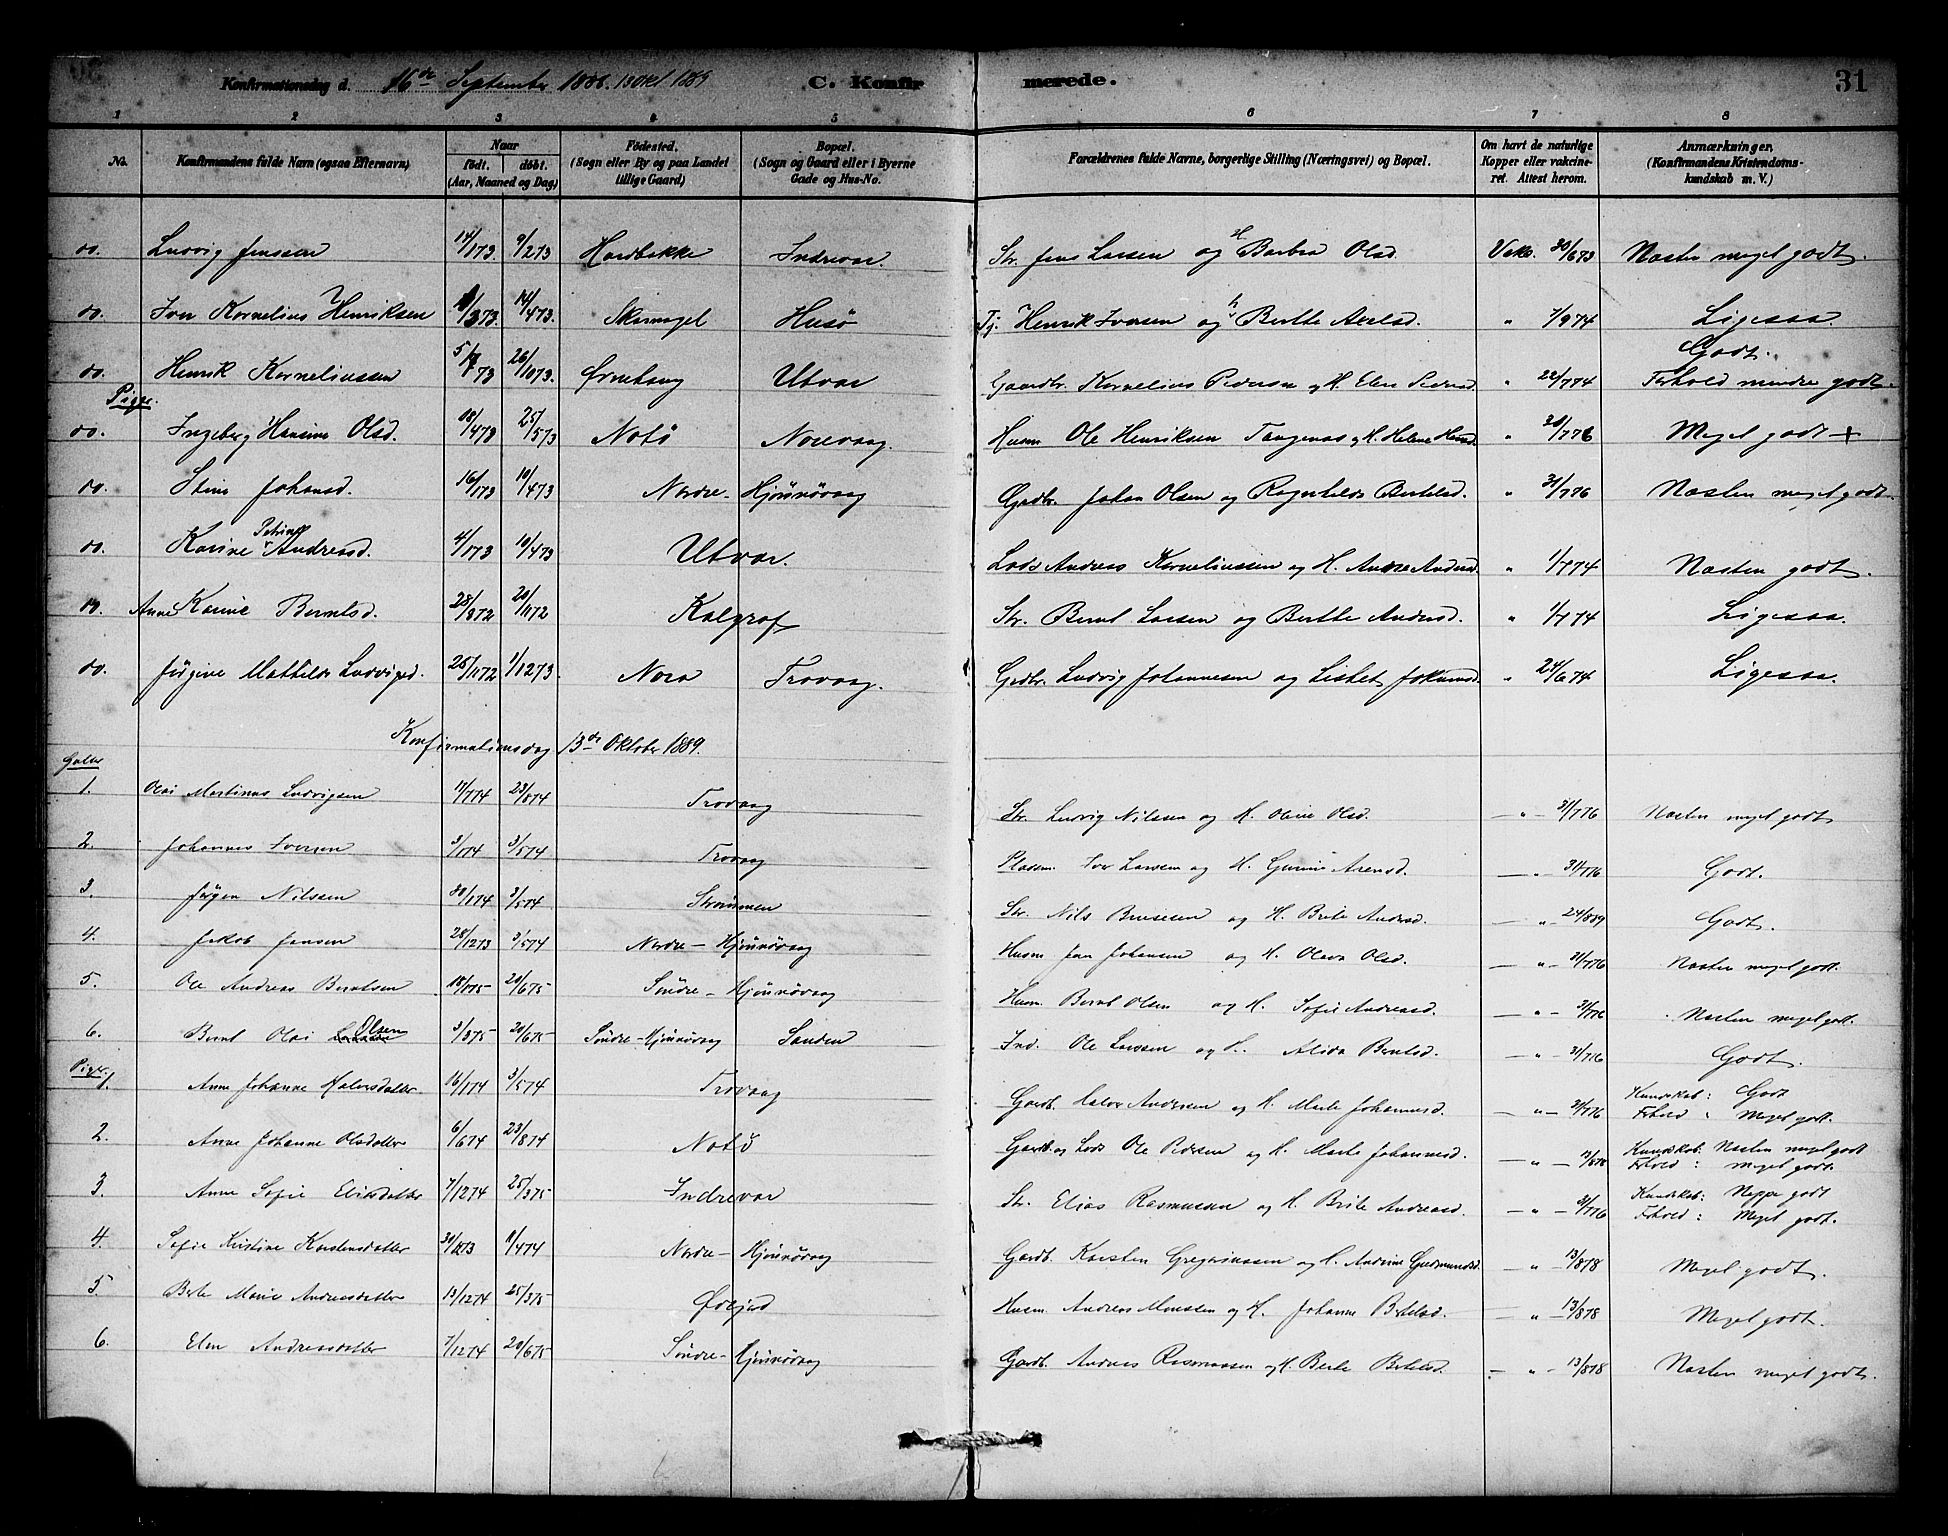 Konfirmationsdag d. 16de September 1888. 13 Okt 1889 C. Konfirmerede. 31
1 2 3 4 5 6 7 8
No. Konfirmandens fulde Navn (ogsaa Efternavn) Naar født. døbt. (Aar, Maaned og Dag) Fødested. (Sogn eller By og paa Landet tillige Gaard) Bopæl. (Sogn og Gaard eller i Byerne Gade og Hus-No. Forældrenes fulde Navne, borgerlige Stilling (Næringsvei) og Bopæl. Om havt de naturlige Kopper eller vakcineret. Attest herom. Anmærkninger, (Konfirmandens Kristendomskundskab m. V.)
00. Ludvig Jenssen 14/173. 9/273 Hardbakke Indrevær. Str. Jens Larsen og H. Barbra Olsd. Vakc. 30/673 Næsten meget godt.
00. Iver Kornelius Henriksen /373. 14/473. Skarvagel Husø Tj. Henrik Iversen og H. Berthe Axelsd. " 7/974 Ligesaa.
00. Henrik Korneliussen 5/73 26/1073. Ørnehaug Utvær Gaardbr. Kornelius Pedersen og H. Elen Pedersd. " 22/774 Godt. Forhold mindre godt.
Piger.
00. Ingeborg Hansine Olsd. 18/473 25/573 Notø Norevaag. Husm Ole Henriksen Tangenes og H. Helene Hansd. " 30/776 Meget godt +
00. Stine Johansd. 16/173 10/473 Nordre-Hjønnøvaag Grdbr. Johan Olsen og Ragnhilde Bertelsd. " 31/776 Næsten meget godt.
00. Karine Petrine Andreasd. 4/173 10/473 Utvær. Lods Andreas Korneliussen og H. Anne Andersd. " 1/774 Næsten godt.
00. Anne Karine Berntsd. 28/972 20/1172 Kalgraf Str. Bernt Larsen og Berthe Andersd. " 1/774 Ligesaa.
00. Jørgine Mathilde Ludvigsd. 25/1172 1/1273. Nora Trovaag. Grdbr. Ludvig Johannesen og Lisbet Jokumsd. " 24/674 Ligesaa.
Konfirmationsdag 13de Oktober 1889.
Gutter
1. Olai Martinus Ludvigsen 11/774 23/874 Trovaag Str. Ludvig Nilssen og H. Oline Olsd. — " — 31/776 Næsten meget godt
2. Johannes Iversen 3/174 3/574 Trovaag Pladsm. Iver Larssen og H. Gurine Arensd. — " — 31/776 Godt.
3. Jørgen Nilssen 30/174 3/574 Strømmen Str. Nils Brusesen og H. Brite Andersd. — " — 24/889 Godt.
4. Jakob Jansen 28/1273 3/574 Nordre-Hjønnøvaag Husm Jan Johansen og H. Olava Olsd. — " — 31/776 Næsten meget godt.
5. Ole Andreas Berntsen 18/175- 20/675- Søndre-Hjønnøvaag Husm. Bernt Olsen og H. Sofie Andreasd. — " — 31/776 Næsten meget godt.
6. Bernt Olai Olsen 3/375- 20/675- Søndre-Hjønnøvaag Sanden Ind. Ole Larssen og H. Alida Berntsd. — " — 31/776 Godt.
Piger.
1. Anne Johanne Halvorsdatter 16/174 3/574 Trovaag Gardb. Halvor Andersen og H. Marte Johannesd. — " — 31/776 Kundskab: Godt Forhold: Meget godt.
2. Anne Johanne Olsdatter 6/674 23/874 Notø Gardb. og Lods Ole Pedersen og H. Marte Johannesd. — " — 13/878 Kundskab: Næsten meget godt Forhold: meget godt.
3. Anne Sofie Eliasdatter 7/1274 25/375 Indrevær Str. Elias Rasmussen og H. Brite Andreasd. — " — 31/776 Kundskab: Neppe godt Forhold: Meget godt.
4. Sofie Kristine Karstensdatter 30/1273 11/474 Nordre-Hjønnøvaag Gardb. Karsten Gregoriussen og H. Andrine Gudmundsd. — " — 13/878 Meget godt.
5. Berte Marie Andreasdatter 13/1274 25/375 Ødejord Husm. Andreas Monssen og H. Johanne Bertelsd. — " — 13/878 Meget godt.
6. Elen Andreasdatter 7/1274 20/675 Søndre-Hjønnøvaag Gardb. Andreas Rasmussen og H. Berte Bertelsd. — " — 13/878 Næsten meget godt.